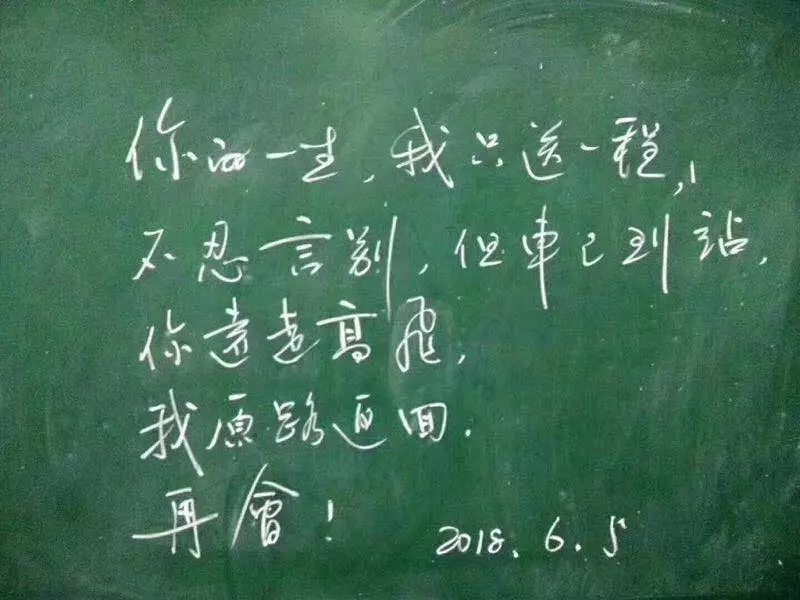 你的一生，我只送一程，
不忍言别，但車已到站，
你遠走高飛，
我原路返回．
再會！ 2018．6．5